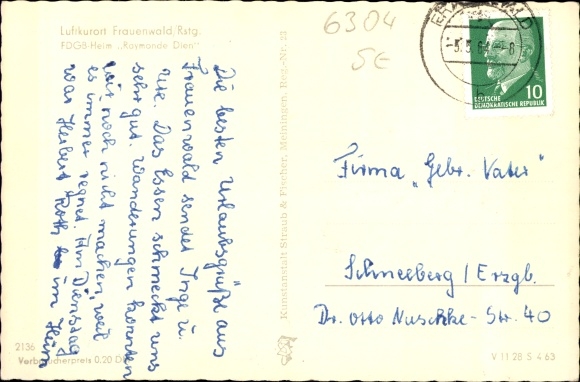 Luftkurort Frauenwald/Rstg.
FDGB-Heim „Raymonde Dien"
6304
SE
-5.5.64 -8
10
DEUTSCHE
DEMOKRATISCHE REPUBLIK
Die besten Urlaubsgrüße aus
Frauenwald sendet Inge u.
Ute. Das Essen schmeckt uns
sehr gut. Wanderungen konnten
wir noch nicht machen, weil
es immer regnet. Am Dienstag
war Herbert Roth im Heim
Kunstanstalt Straub & Fischer, Meiningen, Reg.-Nr.
Firma „Gebr. Vater"
Schneeberg/Erzgb.
Dr. Otto Nuschke-Str. 40
2136
Verbraucherpreis 0,20 DM
V 11 28 S 4 63